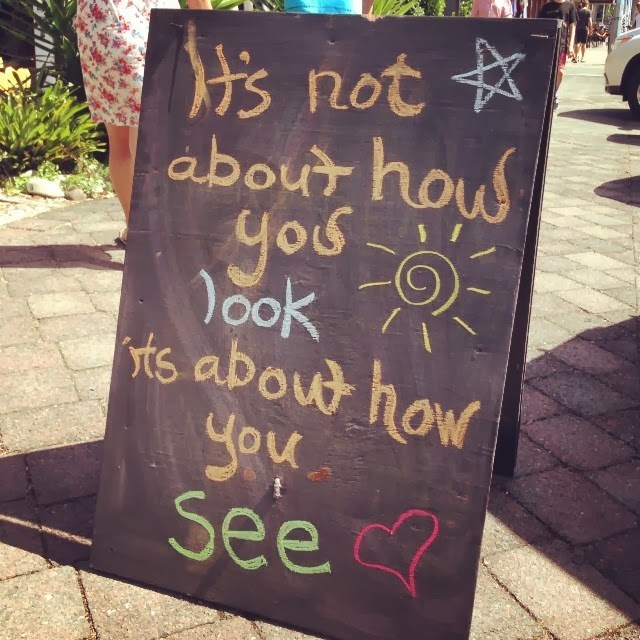 It's not
about how
you
look
it's about how
you
see